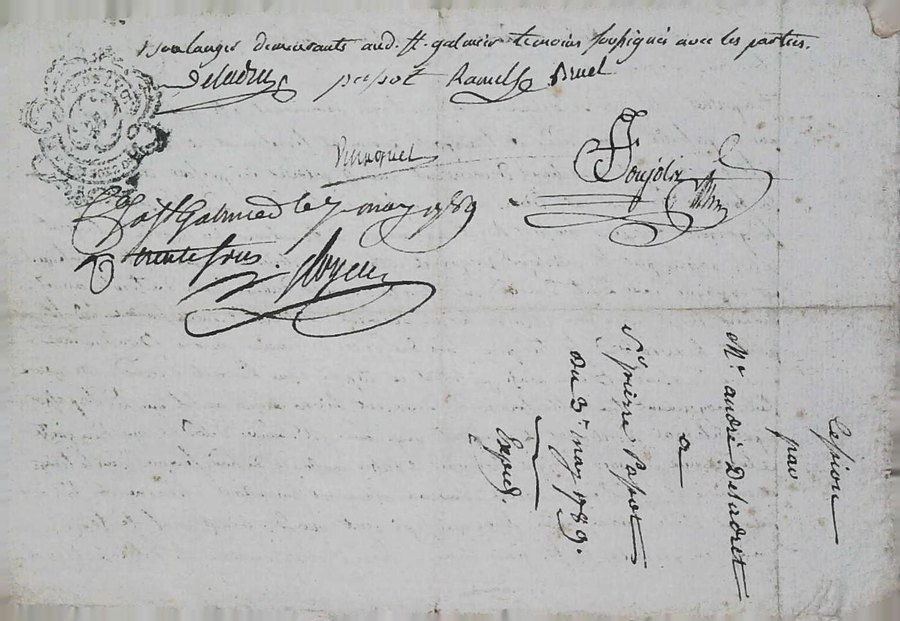 Boulanger demeurants aud. St. galmier temoins soussignés avec les parties.
Desadret papot Ramel Bruel
St Galmier le 7 may 1789
trente sous.
Cession
par
Me. andré Desadret
a
Sr. pierre Papot
Du 3e may 1789.
Exped.